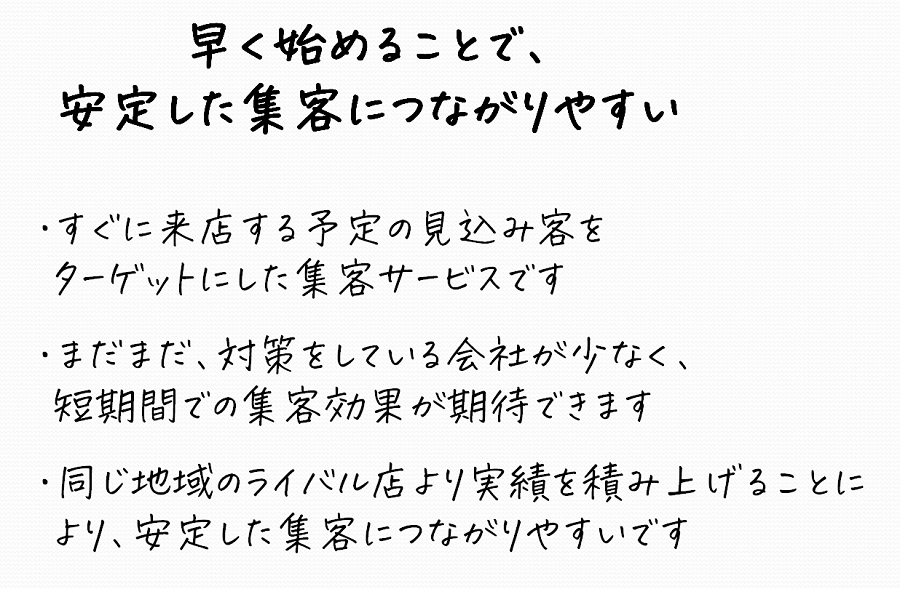 早く始めることで、
安定した集客につながりやすい
・すぐに来店する予定の見込み客を
ターゲットにした集客サービスです
・まだまだ、対策をしている会社が少なく、
短期間での集客効果が期待できます
・同じ地域のライバル店より実績を積み上げることに
より、安定した集客につながりやすいです